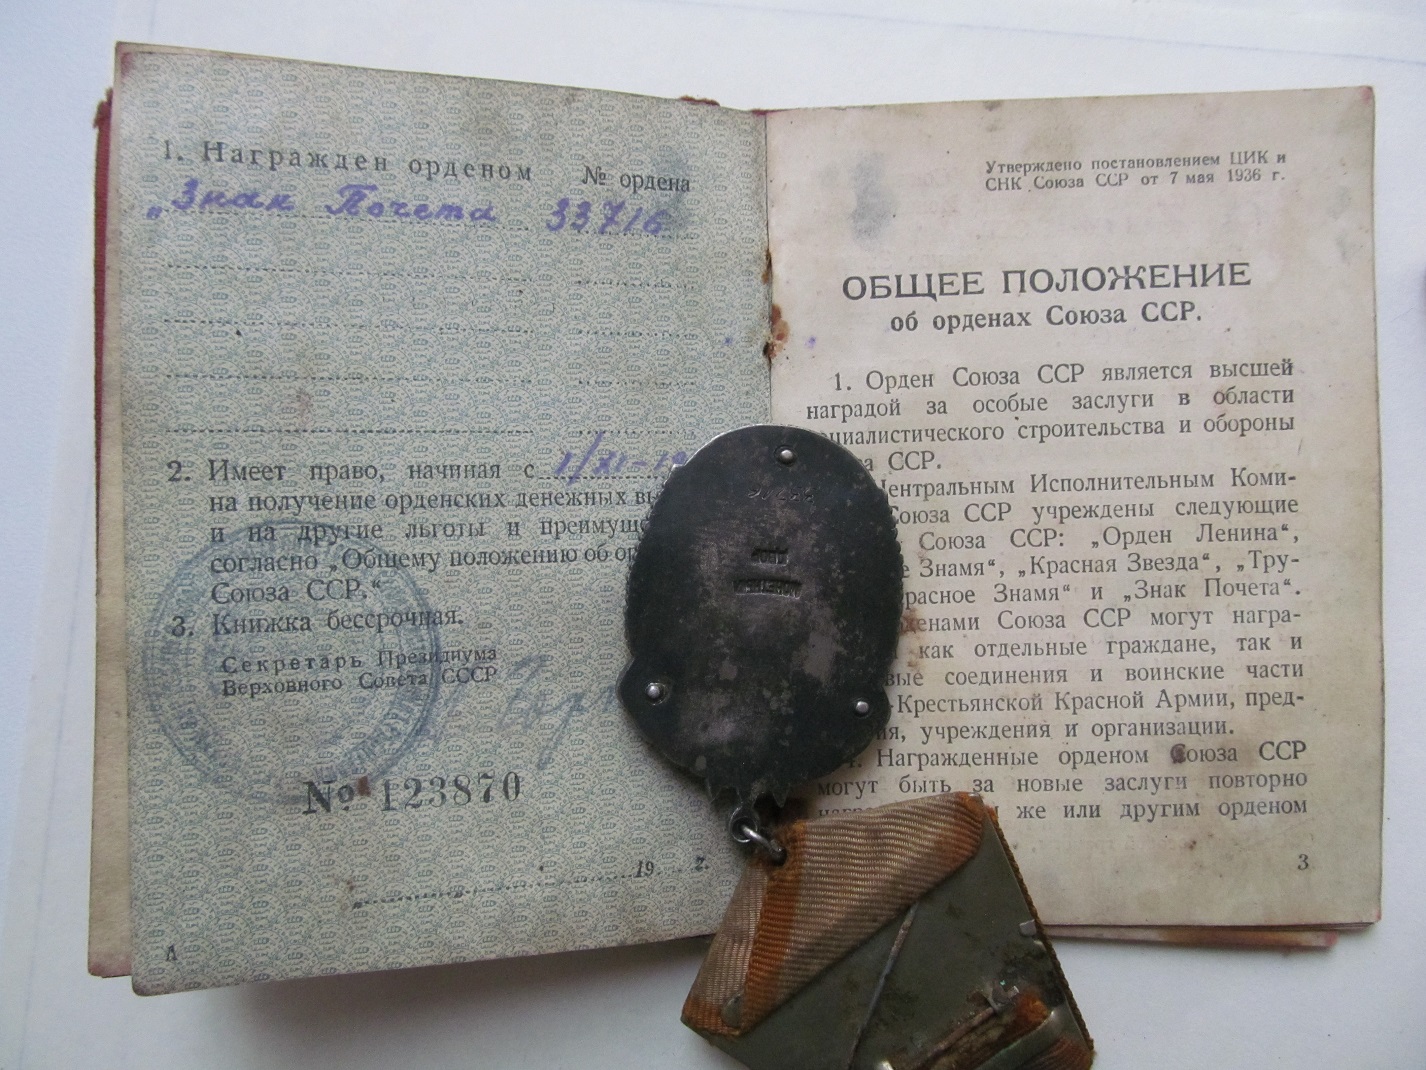 1. Награжден орденом № ордена
„Знак Почета 33716
2. Имеет право, начиная с 1/XI-19
на получение орденских денежных вы
и на другие льготы и преимуще
согласно „Общему положению об ор
Союза ССР.“
3. Книжка бессрочная.
Секретарь Президиума
Верховного Совета СССР
№ 123870
19 г.
А
Утверждено постановлением ЦИК и
СНК Союза ССР от 7 мая 1936 г.
ОБЩЕЕ ПОЛОЖЕНИЕ
об орденах Союза ССР.
1. Орден Союза ССР является высшей
наградой за особые заслуги в области
социалистического строительства и обороны
а ССР.
Центральным Исполнительным Коми-
Союза ССР учреждены следующие
Союза ССР: „Орден Ленина“,
е Знамя“, „Красная Звезда“, „Тру-
расное Знамя“ и „Знак Почета“.
денами Союза ССР могут награ-
как отдельные граждане, так и
вые соединения и воинские части
Крестьянской Красной Армии, пред-
ия, учреждения и организации.
4. Награжденные орденом Союза ССР
могут быть за новые заслуги повторно
же или другим орденом
3
33716
МОНЕТНЫЙ
ДВОР